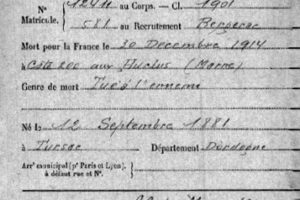 N° 1244 au Corps. — Cl. 1901
Matricule. 581 au Recrutement Bergerac
Mort pour la France le 20 Décembre 1914
à Côte 200 aux Hurlus (Marne)
Genre de mort Tué à l'ennemi
Né le 12 Septembre 1881
à Tursac Département Dordogne
Arrt municipal (pr Paris et Lyon),
à défaut rue et N°.